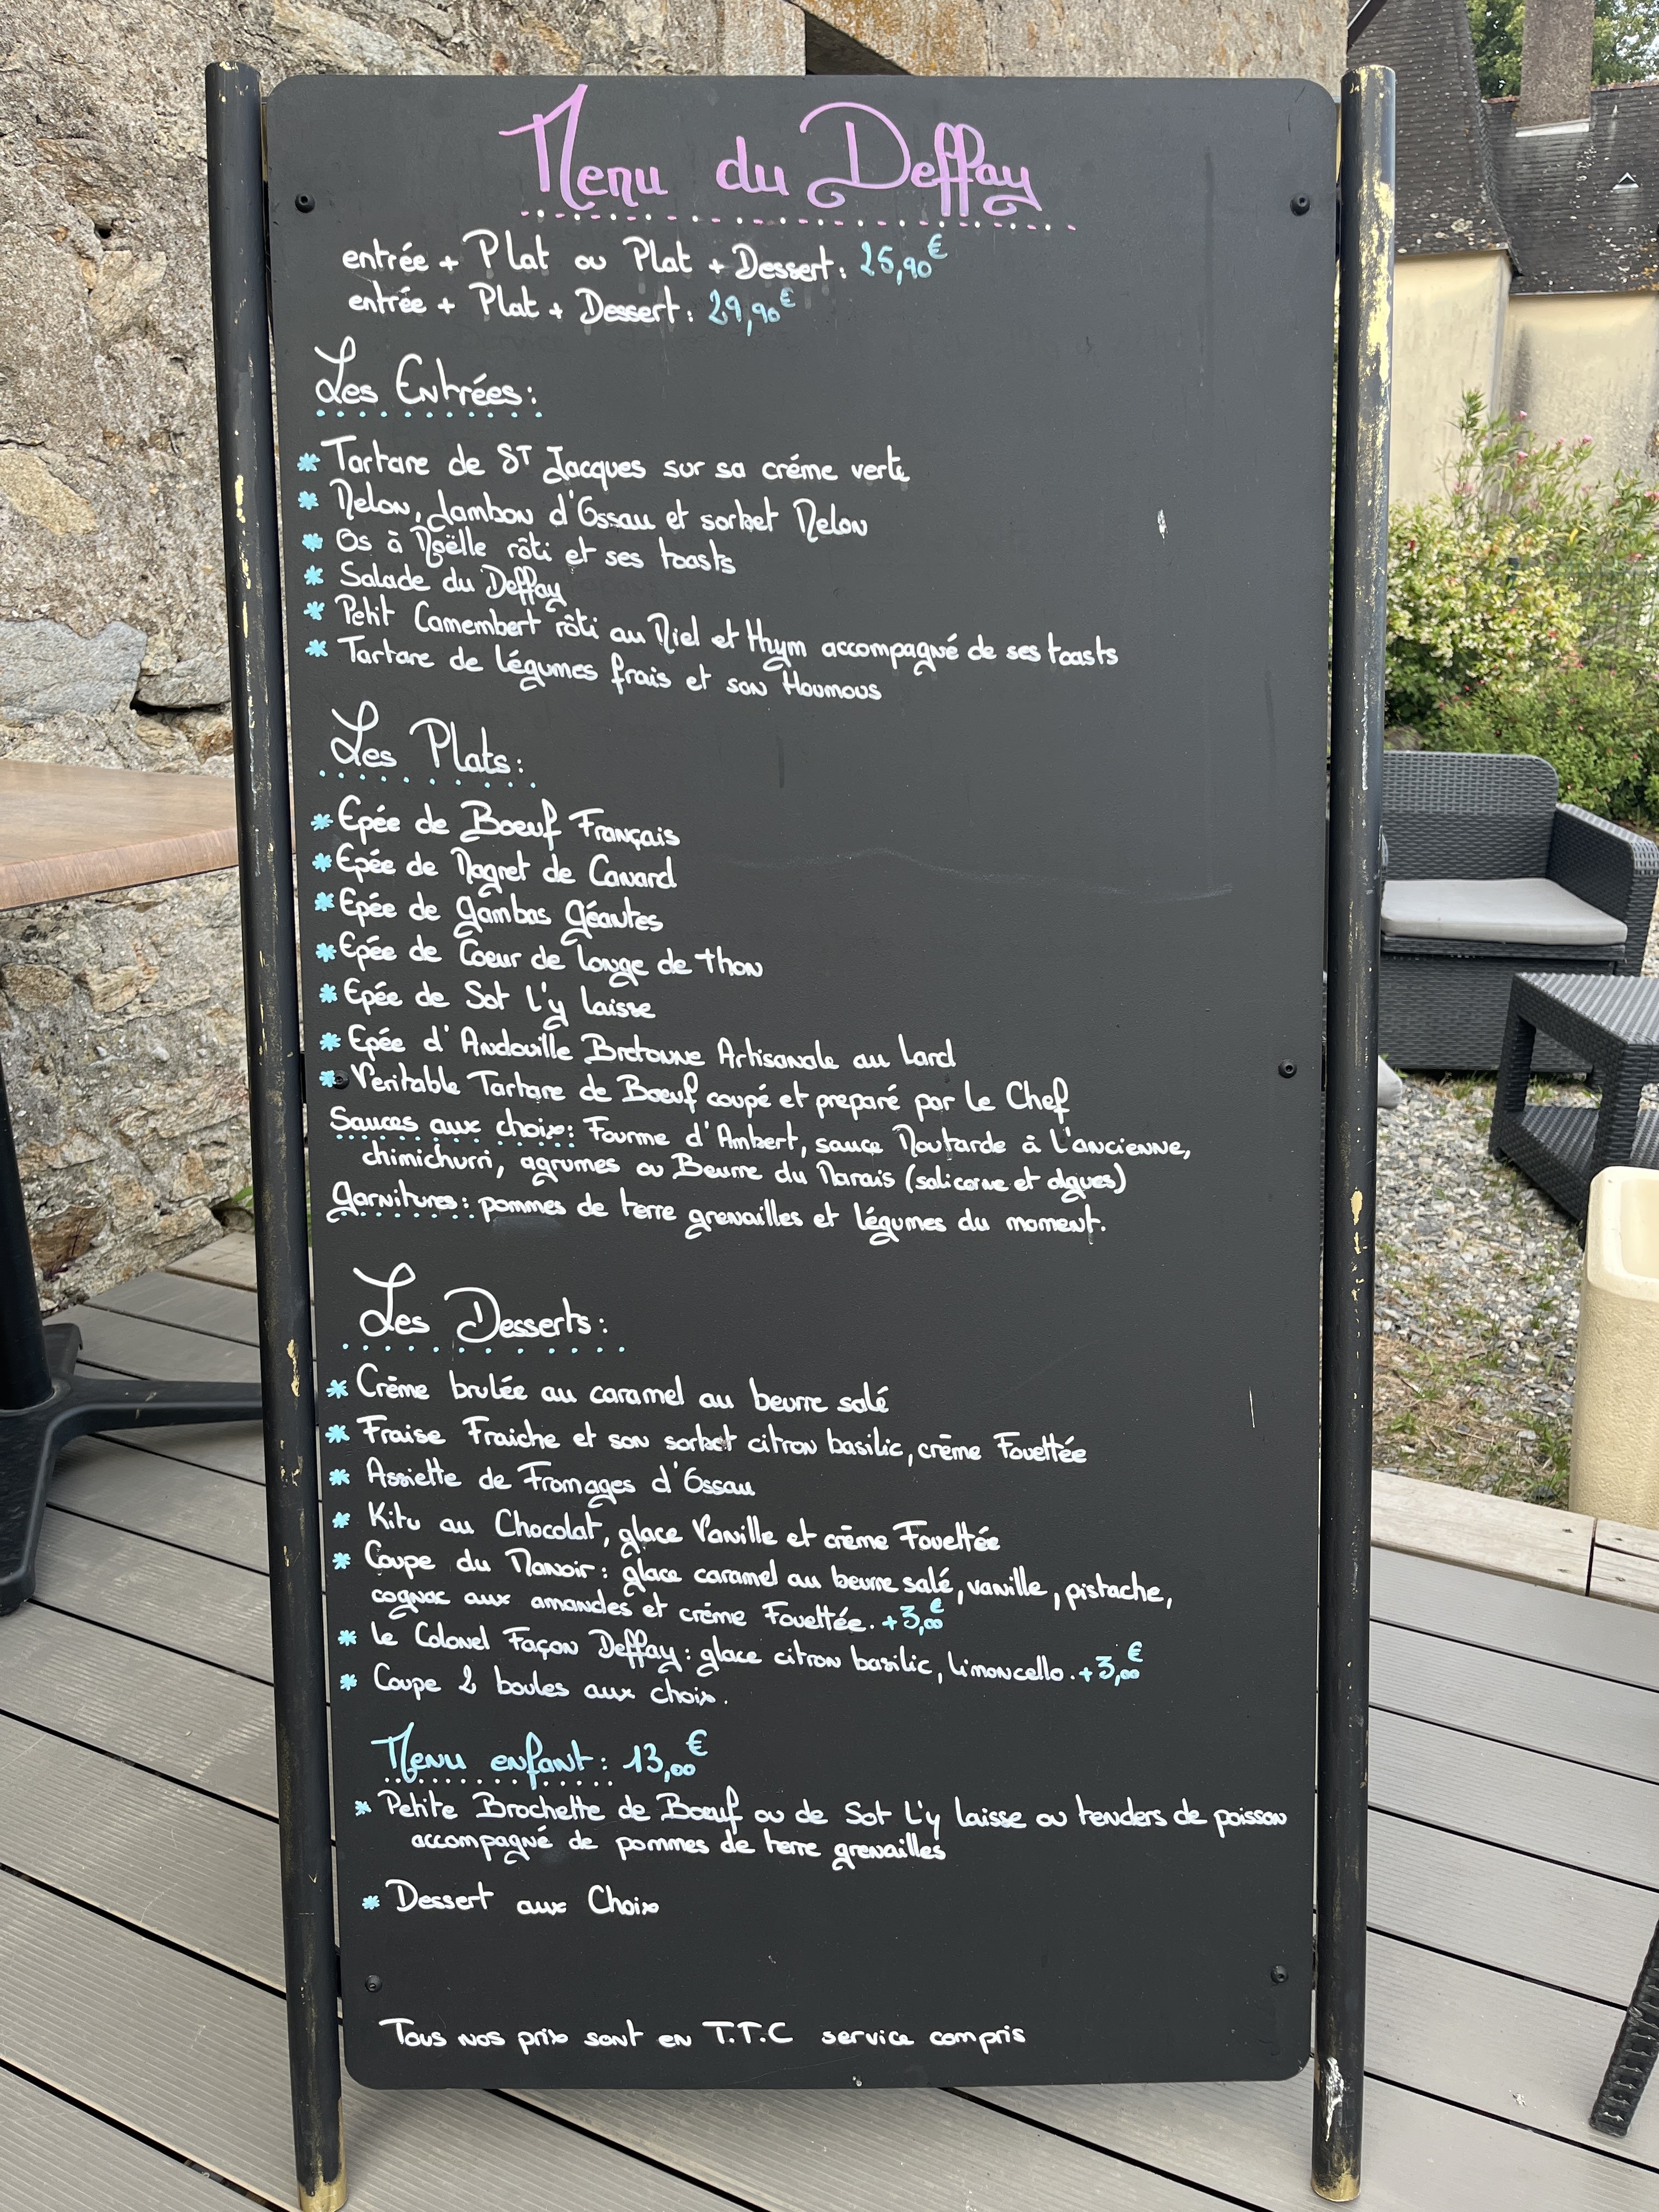 Menu du Deffay
entrée + Plat ou Plat + Dessert : 25,90€
entrée + Plat + Dessert : 29,90€
Les Entrées :
* Tartare de ST Jacques sur sa créme verte
* Melon, Jambon d'Ossau et sorbet Melon
* Os à Moëlle rôti et ses toasts
* Salade du Deffay
* Petit Camembert rôti au Miel et thym accompagné de ses toasts
* Tartare de légumes frais et son Houmous
Les Plats :
* Epée de Boeuf Français
* Epée de Magret de Canard
* Epée de gambas géantes
* Epée de Coeur de longe de thon
* Epée de Sot l'y laisse
* Epée d'Andouille Bretonne Artisanale au lard
* Veritable Tartare de Boeuf coupé et preparé par le Chef
Sauces aux choix : Fourme d'Ambert, sauce Moutarde à l'ancienne,
chimichurri, agrumes ou Beurre du Marais (salicorne et algues)
Garnitures : pommes de terre grenailles et légumes du moment.
Les Desserts :
* Crème brulée au caramel au beurre salé
* Fraise Fraiche et son sorbet citron basilic, crème Fouettée
* Assiette de Fromages d'Ossau
* Kitu au Chocolat, glace Vanille et crème Fouettée
* Coupe du Manoir : glace caramel au beurre salé, vanille, pistache,
cognac aux amandes et crème Fouettée. +3,00€
* Le Colonel Façon Deffay : glace citron basilic, limoncello. +3,00€
* Coupe 2 boules aux choix.
Menu enfant : 13,00€
* Petite Brochette de Boeuf ou de Sot l'y laisse ou tenders de poisson
accompagné de pommes de terre grenailles
* Dessert aux Choix
Tous nos prix sont en T.T.C service compris